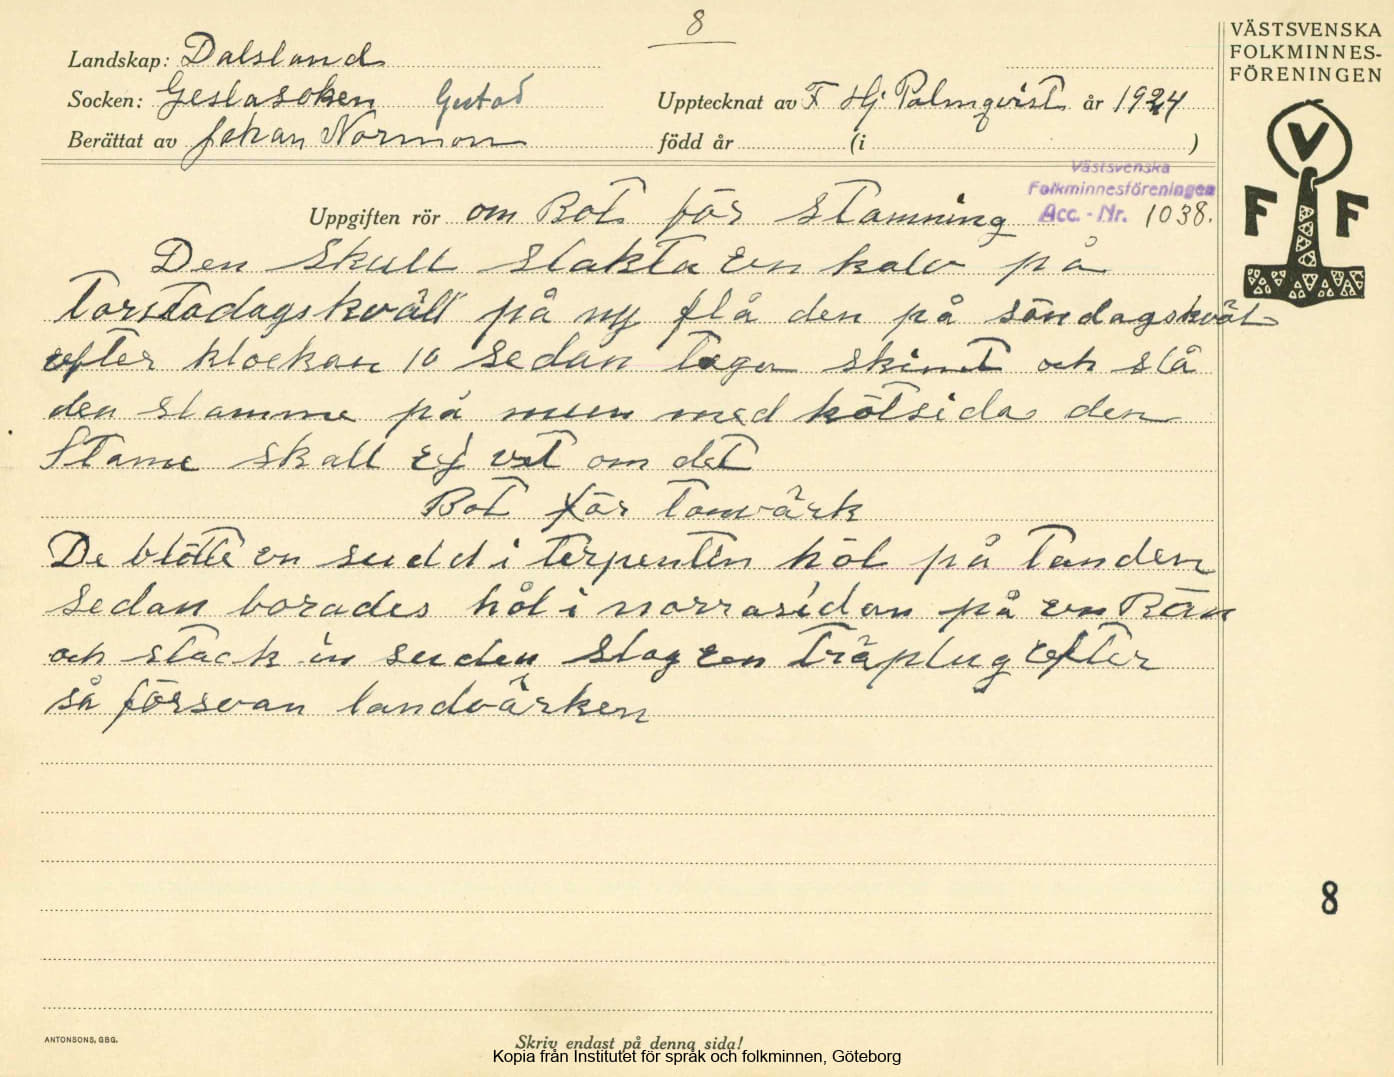 8
VÄSTSVENSKA
FOLKMINNES-
FÖRENINGEN
Landskap: Dalsland
Socken: Geslasoken Gestad
Upptecknat av F Hj Palmqvist år 1924
Berättat av Johan Norman
född år (i )
Västsvenska
Folkminnesföreningen
Acc. - Nr. 1038.
V
F F
Uppgiften rör om Bot för stamning
Den skull slakta en kalv på
Torstadagskväll på ny flå den på söndagskväl
efter klockan 10 sedan taga skint och slå
den stamme på mun med kötsida den
Stame skall ej vet om det
Bot för tanvärk
De blötte en sudd i terpentin höl på Tanden
sedan borades hål i norrasidan på en Rän
och stack in suden slog en träplug efter
så försvan tandvärken
8
ANTONSONS, GBG.
Skriv endast på denna sida!
Kopia från Institutet för språk och folkminnen, Göteborg